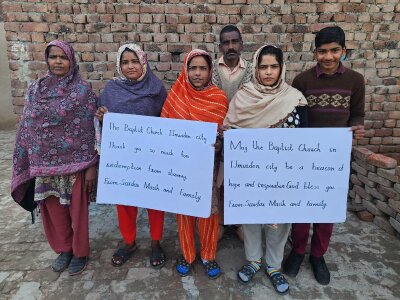 The Baptist Church IJmuiden city
Thank you so much for
redemption from slavery.
From Sardar Masih and family
May the Baptist Church in
IJmuiden city be a beacon of
hope and inspiration God bless you
From Sardar Masih and family.